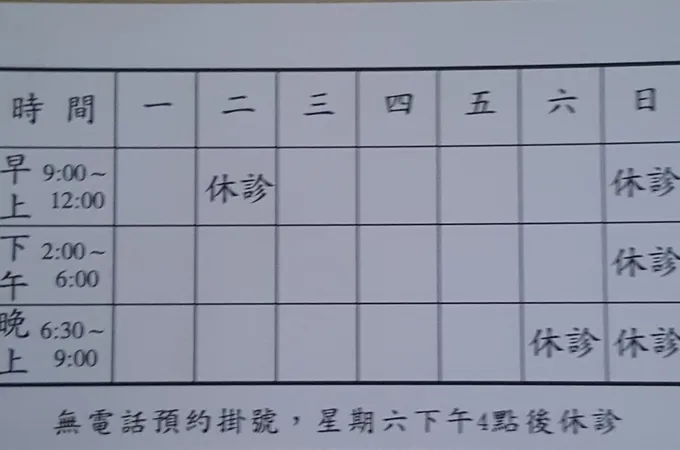 時間 一 二 三 四 五 六 日
早上 9:00~12:00 休診 休診
下午 2:00~6:00 休診
晚上 6:30~9:00 休診 休診
無電話預約掛號，星期六下午4點後休診